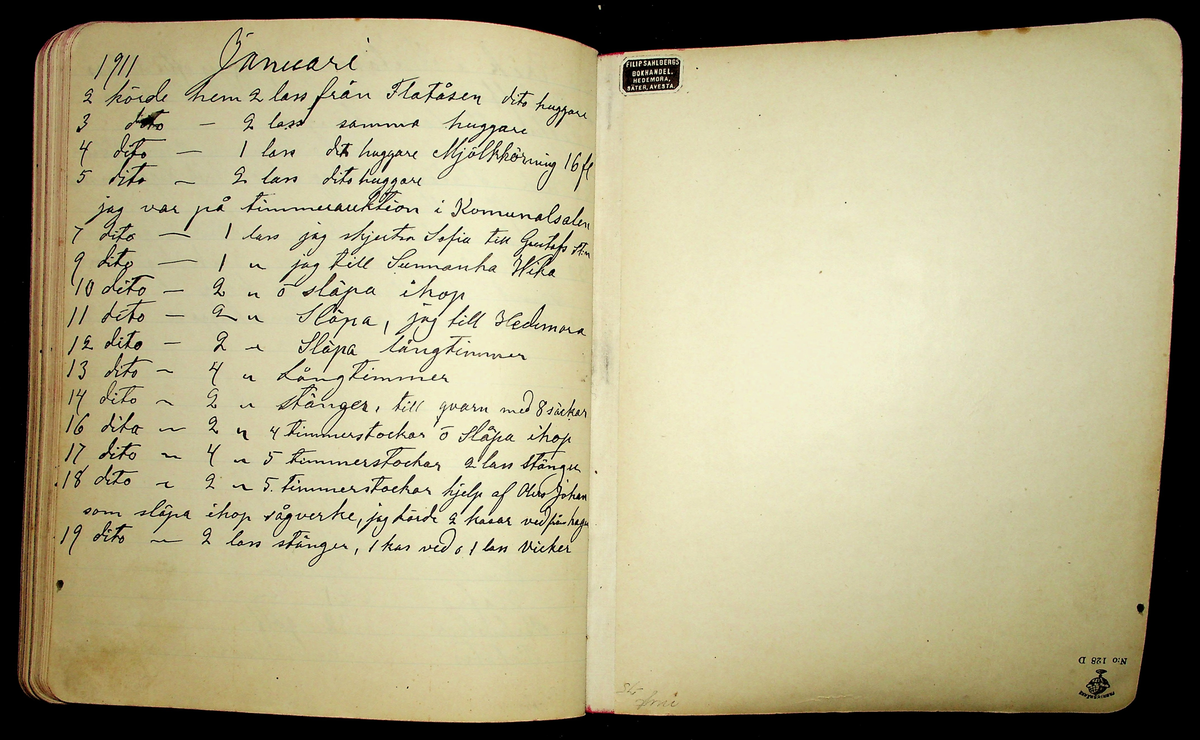 1911 Januari
2 körde hem 2 lass från Flatåsen dito huggare
3 dito — 2 lass samma huggare
4 dito — 1 lass dito huggare Mjölkkörning 16 fl
5 dito — 2 lass dito huggare
jag var på timmerauktion i Komunalsalen
7 dito — 1 lass jag skjutsa Sofia till Gustafs
9 dito — 1 " jag till Sunnanha Wika
10 dito — 2 " o släpa ihop
11 dito — 2 " Släpa, jag till Hedemora
12 dito — 2 " Släpa långtimmer
13 dito — 4 " Långtimmer
14 dito — 2 " stänger, till qvarn med 8 säckar
16 dito — 2 " 4 timmerstockar o Släpa ihop
17 dito — 4 " 5 timmerstockar 2 lass stänger
18 dito — 2 " 5 timmerstockar hjelp af Johan
som släpa ihop sågverke, jag körde 2 kasar ved
19 dito — 2 lass stänger, 1 kas ved o 1 lass Vicker
FILIP SAHLBERGS
BOKHANDEL,
HEDEMORA,
SÄTER, AVESTA.
N:o 128 D